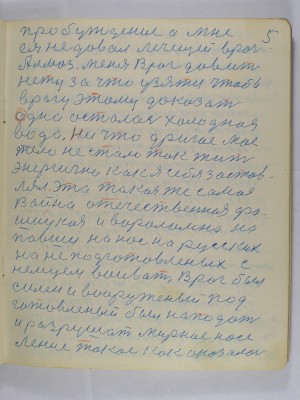 5
пробуждение а мне
ея не довал лечищей врог.
Алмоз. меня Враг довит
нету за что узяти чтобы
врагу этому доказат
одна осталас холодная
вода. Ни что другое мое
тело не стало так жит
энергично как я себя застов-
лял. Эта такая же самая
Война отечественная фа-
шиская и вораломна на
павши на нос на русских
на не подготовленых с
немцем воивать, Враг был
силен и вооруженый под
готовленый был находот
и разрушат мирное носе
ление такое как оказалос